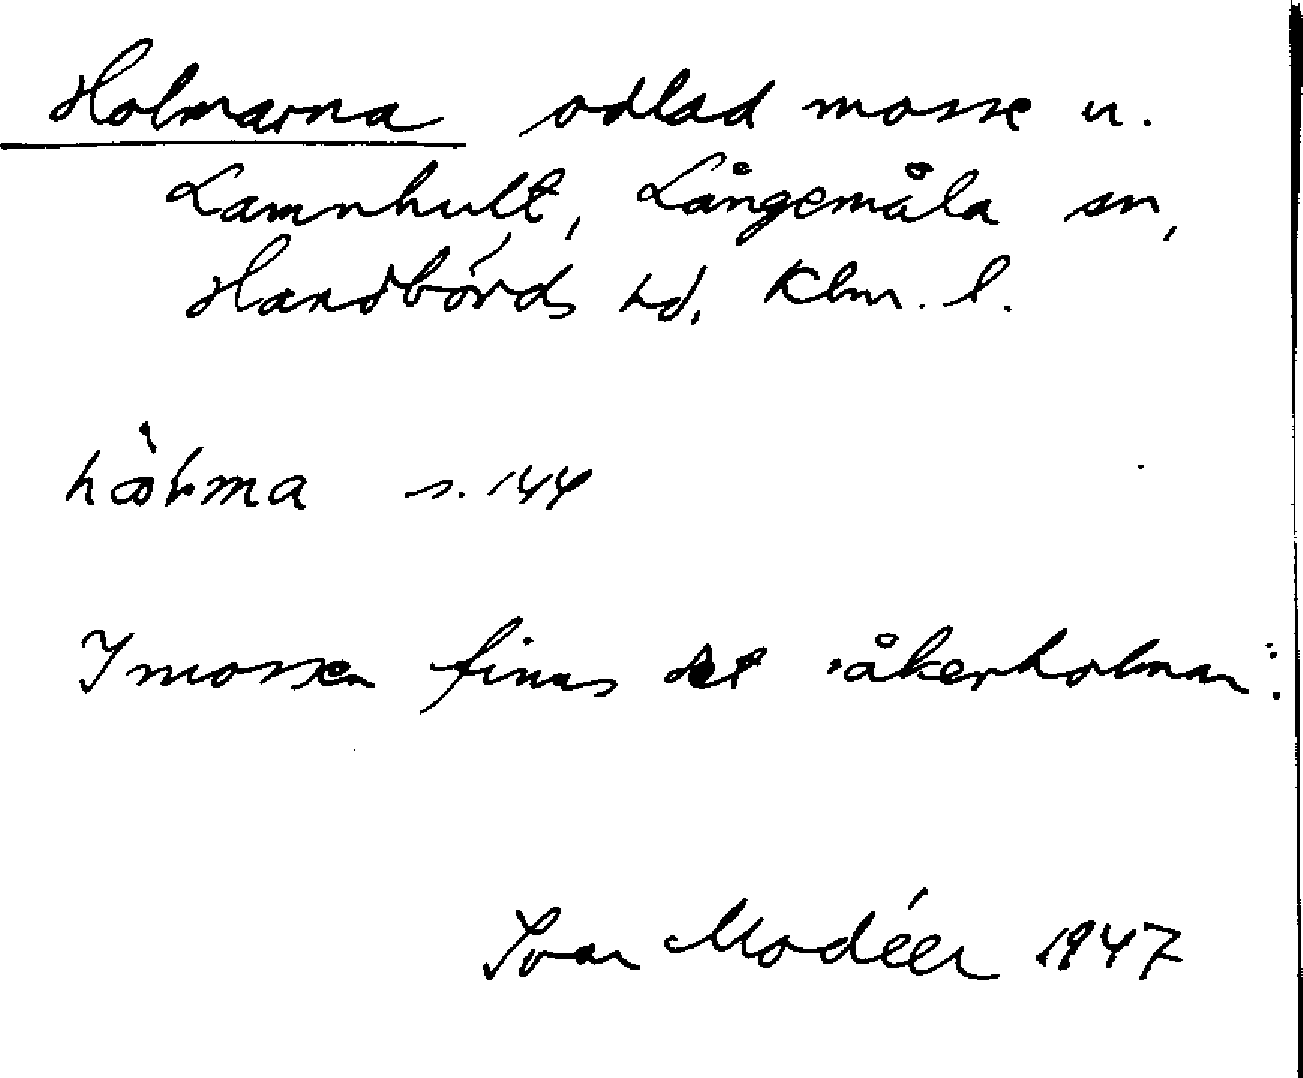 Holmarna odlad mosse u.
Lamnhult, Långemåla sn,
Handbörds hd. Klm. l.
s. 144
I mossen finns det "åkerholmar":
Ivar Modéer 1947